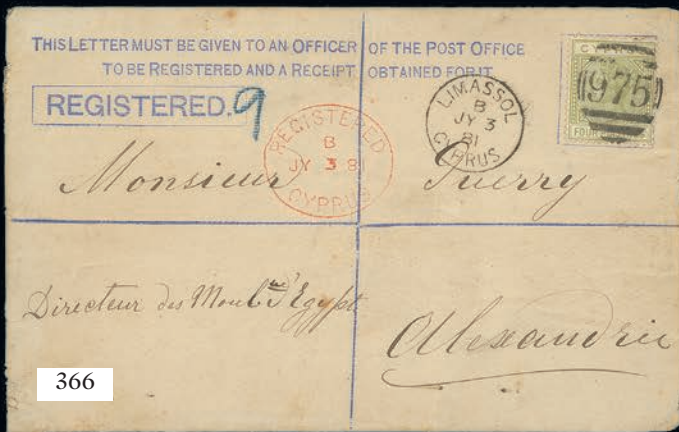 THIS LETTER MUST BE GIVEN TO AN OFFICER OF THE POST OFFICE
TO BE REGISTERED AND A RECEIPT OBTAINED FOR IT
REGISTERED. 9
REGISTERED
B
JY 3 81
CYPRUS
LIMASSOL
B
JY 3
81
CYPRUS
975
FOUR
Monsieur
Directeur des Moul.ins d'Egypte
Alexandrie
366